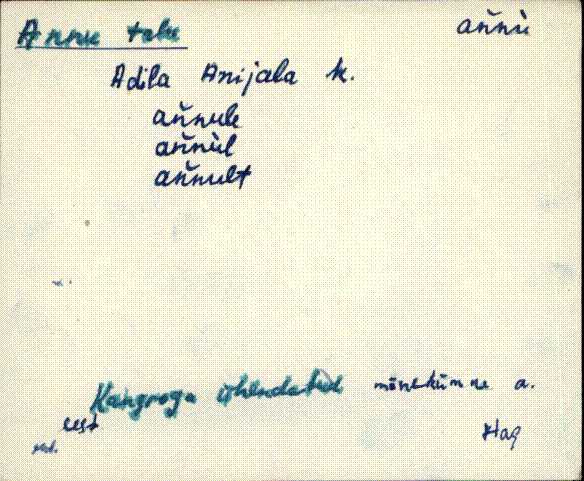 Annu talu aňnù
Adila Anijala k.
aňnule
aňnùl
aňnult
Kangroga ühendatud mõnekümne a.
eest
Hag